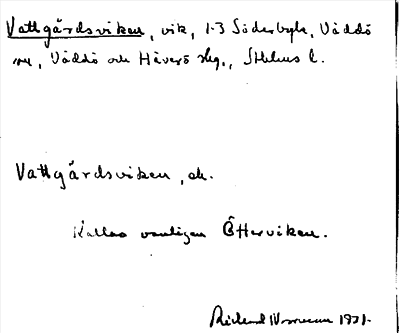 Vattgårdsviken, vik, 1-3 Söderbyle, Väddö
sn, Väddö och Häverö slg., Sthlms l.
Vattgårdsviken, ok.
Kallas vanligen Österviken.
Rickard Wessman 1931.